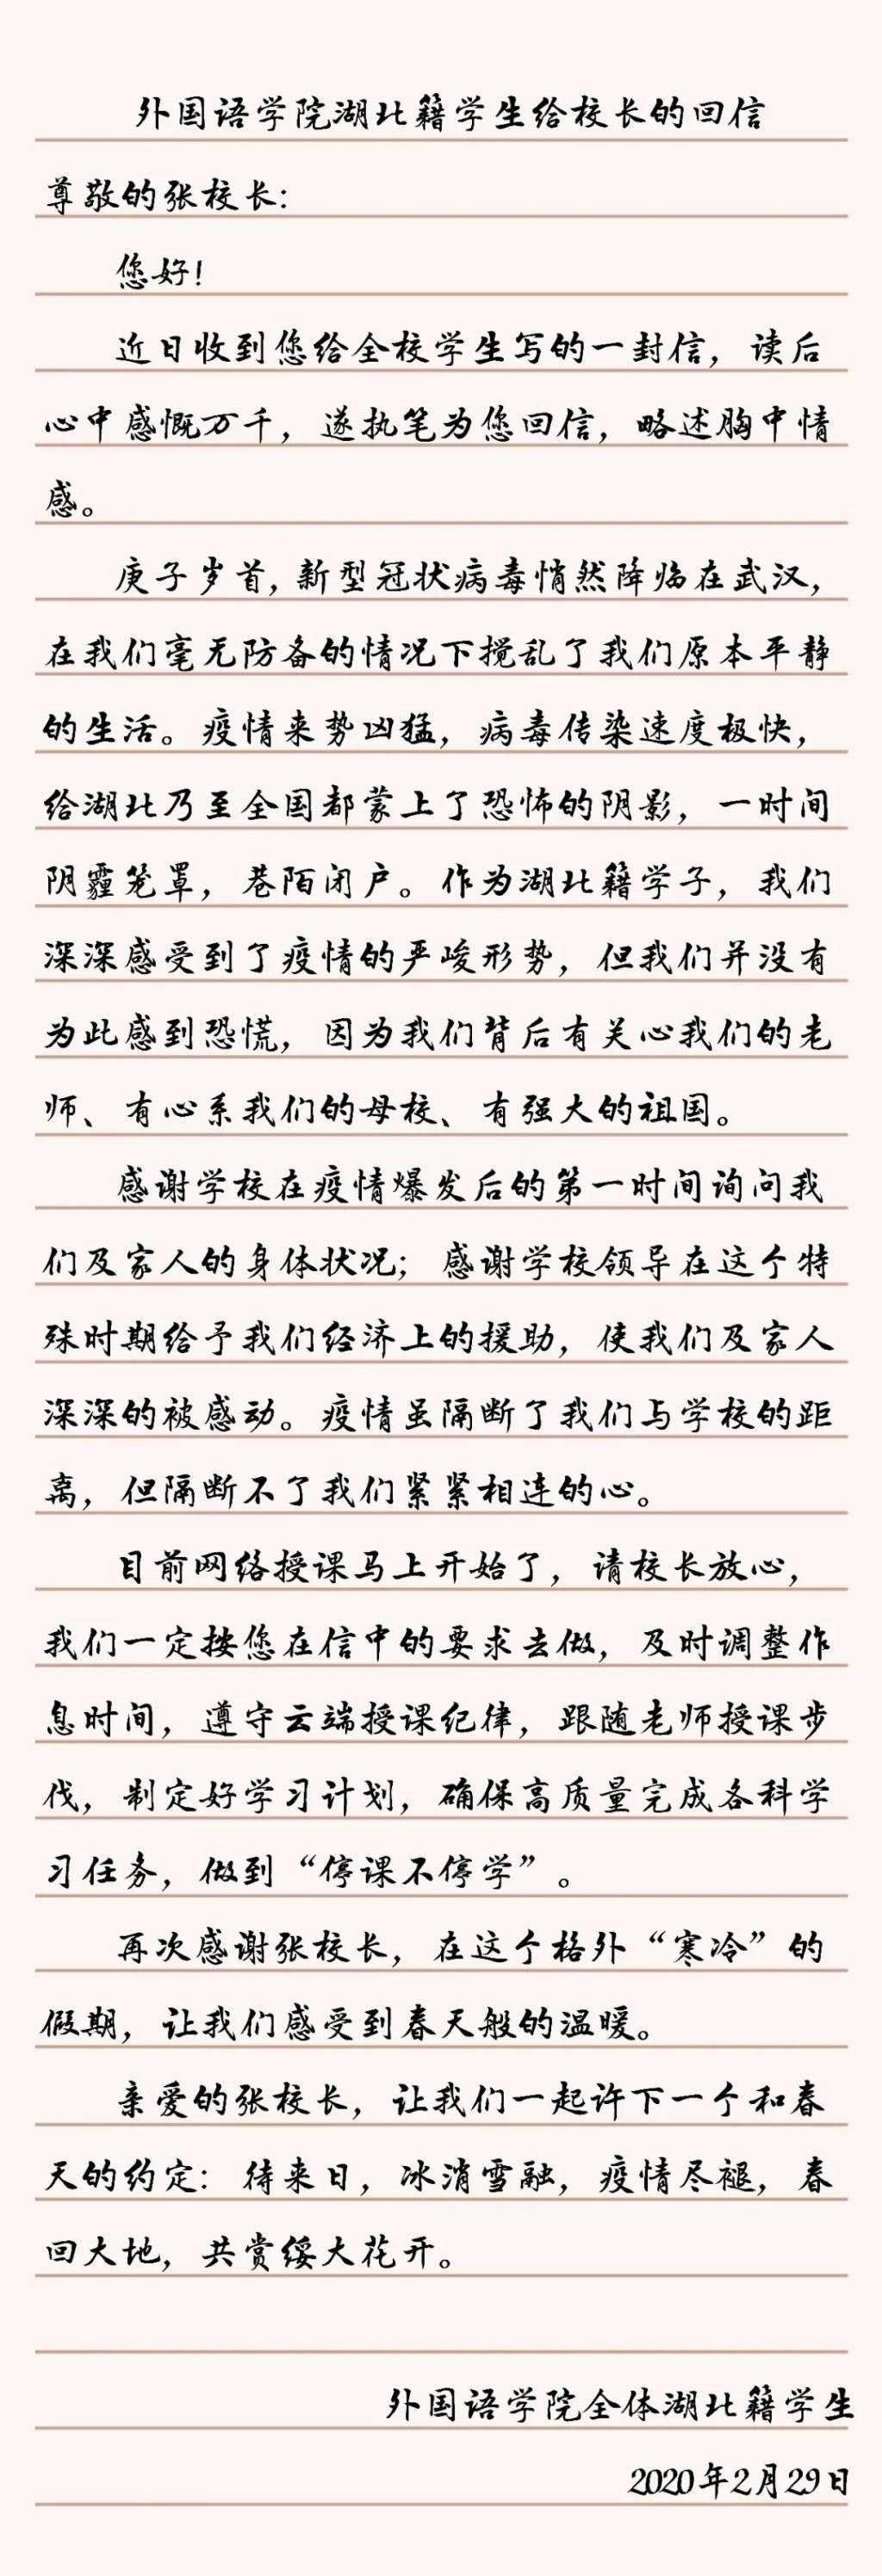 外国语学院湖北籍学生给校长的回信
尊敬的张校长:
您好!
近日收到您给全校学生写的一封信，读后
心中感慨万千，遂执笔为您回信，略述胸中情
感。
庚子岁首,新型冠状病毒悄然降临在武汉，
在我们毫无防备的情况下搅乱了我们原本平静
的生活。疫情来势凶猛，病毒传染速度极快，
给湖北乃至全国都蒙上了恐怖的阴影，一时间
阴霾笼罩，巷陌闭户。作为湖北籍学子，我们
深深感受到了疫情的严峻形势，但我们并没有
为此感到恐慌，因为我们背后有关心我们的老
师、有心系我们的母校、有强大的祖国。
感谢学校在疫情爆发后的第一时间询问我
们及家人的身体状况；感谢学校领导在这个特
殊时期给予我们经济上的援助，使我们及家人
深深的被感动。疫情虽隔断了我们与学校的距
离，但隔断不了我们紧紧相连的心。
目前网络授课马上开始了，请校长放心，
我们一定按您在信中的要求去做，及时调整作
息时间，遵守云端授课纪律，跟随老师授课步
伐，制定好学习计划，确保高质量完成各科学
习任务，做到“停课不停学”。
再次感谢张校长，在这个格外“寒冷”的
假期，让我们感受到春天般的温暖。
亲爱的张校长，让我们一起许下一个和春
天的约定：待来日，冰消雪融，疫情尽褪，春
回大地，共赏绥大花开。
外国语学院全体湖北籍学生
2020年2月29日